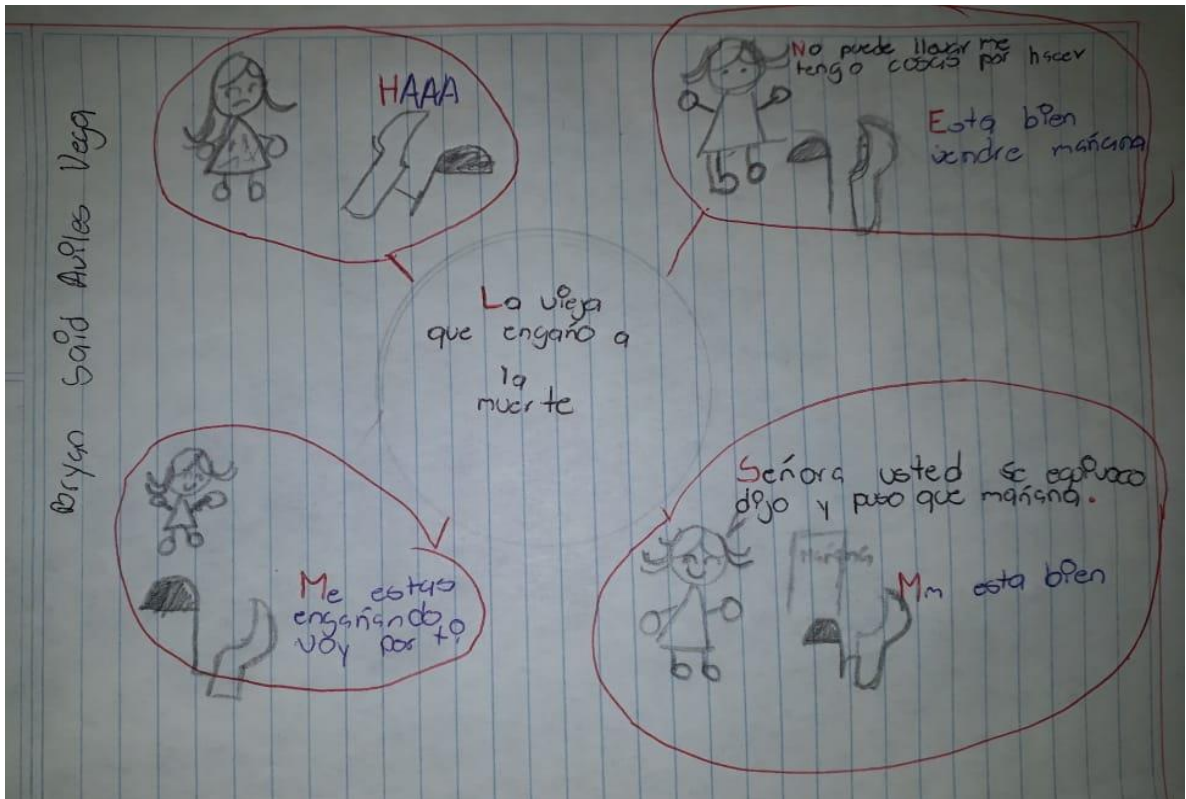 Bryan Said Aviles Vega
HAAA
No puede llevar me
tengo cosas por hacer
Esta bien
vendre mañana
La vieja
que engaño a
la
muerte
Me estas
engañando
voy por ti
Señora usted se equivoco
dijo y puso que mañana.
mañana
Mm esta bien